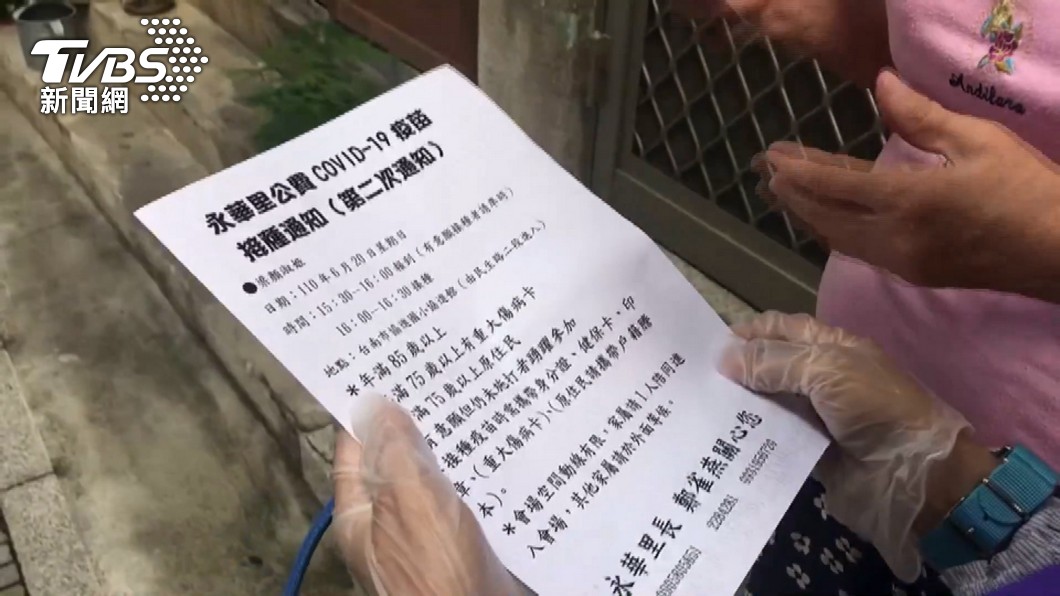 TVBS
新聞網
Andilara
永華里公費COVID-19疫苗
接種通知(第二次通知)
日期:110年6月20日星期日
時間:15:30-16:00報到(有意願接種者請準時)
16:00-16:30接種
地點:台南市協進國小協進館(由民生路二段進入)
*年滿85歲以上
滿75歲以上有重大傷病卡
滿75歲以上原住民
有意願但仍未施打者踴躍參加
接種疫苗時需攜帶身分證、健保卡、印
章、(重大傷病卡)、(原住民請攜帶戶籍謄
本)。
*會場空間動線有限,家屬請1人陪同進
入會場,其他家屬請於外面等候。
永華里長 鄭雀燕關心您